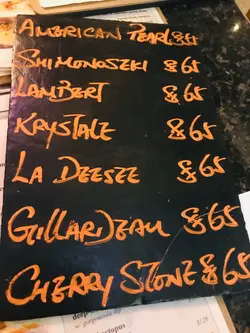 AMERICAN PEARL $65
SHIMONOSEKI $65
LAMBERT $65
KRYSTALE $65
LA DEESEE $65
GILLARDEAU $65
CHERRY STONE $65
octopus
$128